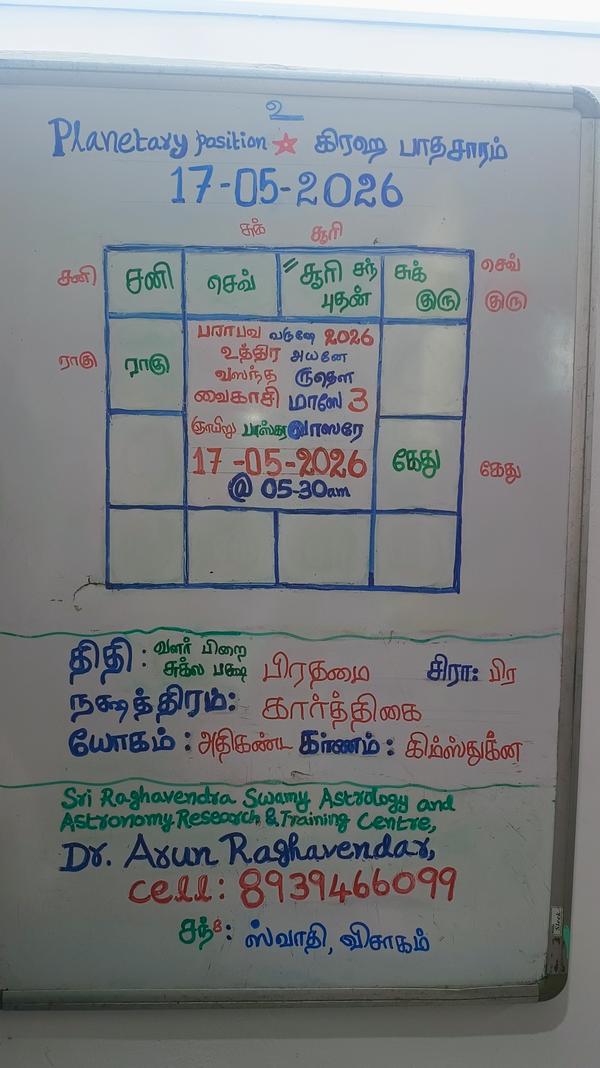 உ
Planetary position ☆ கிரஹ பாதசாரம்
17-05-2026
சுக் சூரி
சனி சனி செவ் சூரி சந் சுக் செவ்
புதன் குரு குரு
பராபவ வருஷே 2026
உத்திர அயனே
ராகு ராகு வஸந்த ருதௌ
வைகாசி மாஸே 3
ஞாயிறு பாஸ்கர வாஸரே
17-05-2026 கேது கேது
@ 05-30am
திதி : வளர் பிறை
சுக்ல பக்ஷ பிரதமை சிரா: பிர
நக்ஷத்திரம்: கார்த்திகை
யோகம் : அதிகண்ட கரணம் : கிம்ஸ்துக்ன
Sri Raghavendra Swamy Astrology and
Astronomy Research & Training Centre,
Dr. Arun Raghavendar,
cell: 8939466099
சந்: ஸ்வாதி, விசாகம்